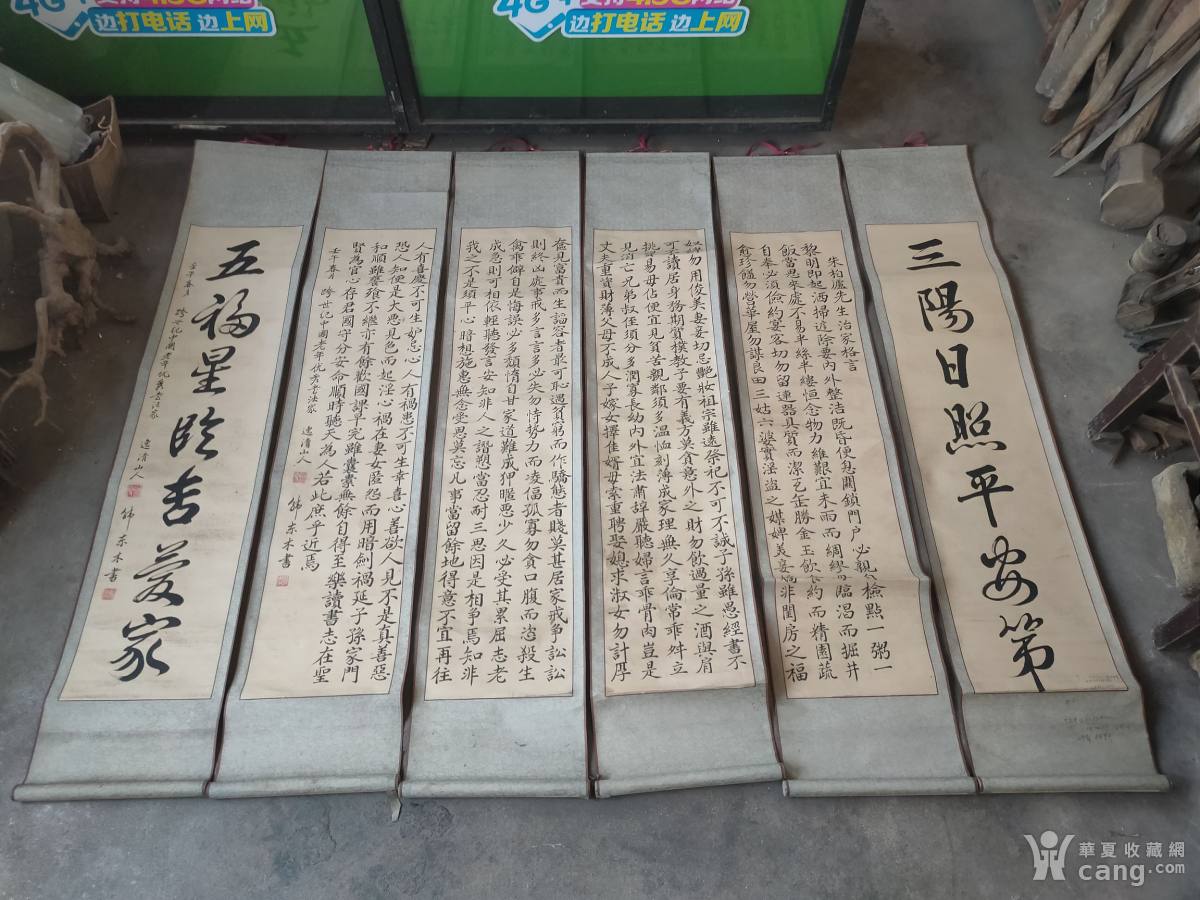 边打电话 边上网
边打电话 边上网
三陽日照平安第
朱柏廬先生治家格言
黎明即起洒掃庭除要內外整洁既昏便息關鎖門戶必親檢點一粥一
飯當思來處不易半絲半縷恒念物力維艱宜未雨而綢繆臨渴而掘井
自奉必須儉約宴客切勿留連器具質而潔瓦缶勝金玉飲食約而精園蔬
愈珍饈勿營華屋勿謀良田三姑六婆實淫盜之媒婢美妾嬌非閨房之福
奴僕勿用俊美妻妾切忌艷妝祖宗雖遠祭祀不可不誠子孫雖愚經書不
可不讀居身務期質樸教子要有義方莫貪意外之財勿飲過量之酒與肩
挑貿易毋佔便宜見貧苦親鄰須多温恤刻薄成家理無久享倫常乖舛立
見消亡兄弟叔侄須分多潤寡長幼內外宜法肅辭嚴聽婦言乖骨肉豈是
丈夫重資財薄父母不成人子嫁女擇佳婿毋索重聘娶媳求淑女勿計厚
奩見富貴而生諂容者最可恥遇貧窮而作驕態者賤莫甚居家戒爭訟訟
則終凶處事戒多言言多必失勿恃勢力而凌偪孤寡勿貪口腹而恣殺生
禽乖僻自是悔誤必多頹惰自甘家道難成狎暱惡少久必受其累屈志老
成急則可相依輕聽發言安知非人之譖愬當忍耐三思因是相爭焉知非
我之不是須平心暗祖施惠無念受恩莫忘凡事當留餘地得意不宜再往
人有喜慶不可生妒忌心人有禍患不可生幸喜心善欲人見不是真善惡
恐人知便是大惡見色而起淫心禍在妻女匿怨而用暗劍禍延子孫家門
和順雖饔飧不繼亦有餘歡國課早完雖囊橐無餘自得至樂讀書志在聖
賢為官心存君國守分安命順時聽天為人若此庶乎近焉
壬午春月 跨世纪中國老年优秀书法家 逸清山人 韩东木書
五福星臨吉慶家
壬午春月 跨世纪中國老年优秀书法家 逸清山人 韩东木書
華夏收藏網
cang.com